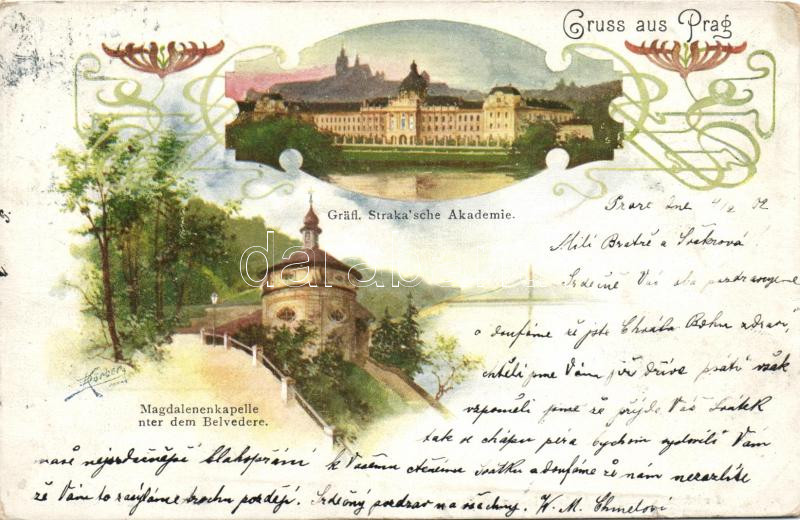 Gruss aus Prag
Gräfl. Straka'sche Akademie.
4/2 02
Milí Bratře a Švakrová!
Srdečně Vás oba pozdravujeme
a doufáme že jste Chvála Bohu zdraví,
chtěli jsme Vám již dříve psáti však
vzpoměli jsme že přijde Váš Svátek
tak se chápu péra bychom vyslovili Vám
Magdalenenkapelle
nter dem Belvedere.
naše nejsrdečnější blahopřání k Vašemu ctěnému svátku a doufáme že nám nezazlíte
že Vám to zasýláme trochu pozdějí. Srdečný pozdrav na všechny. K. M. Chmelovi
darabanth